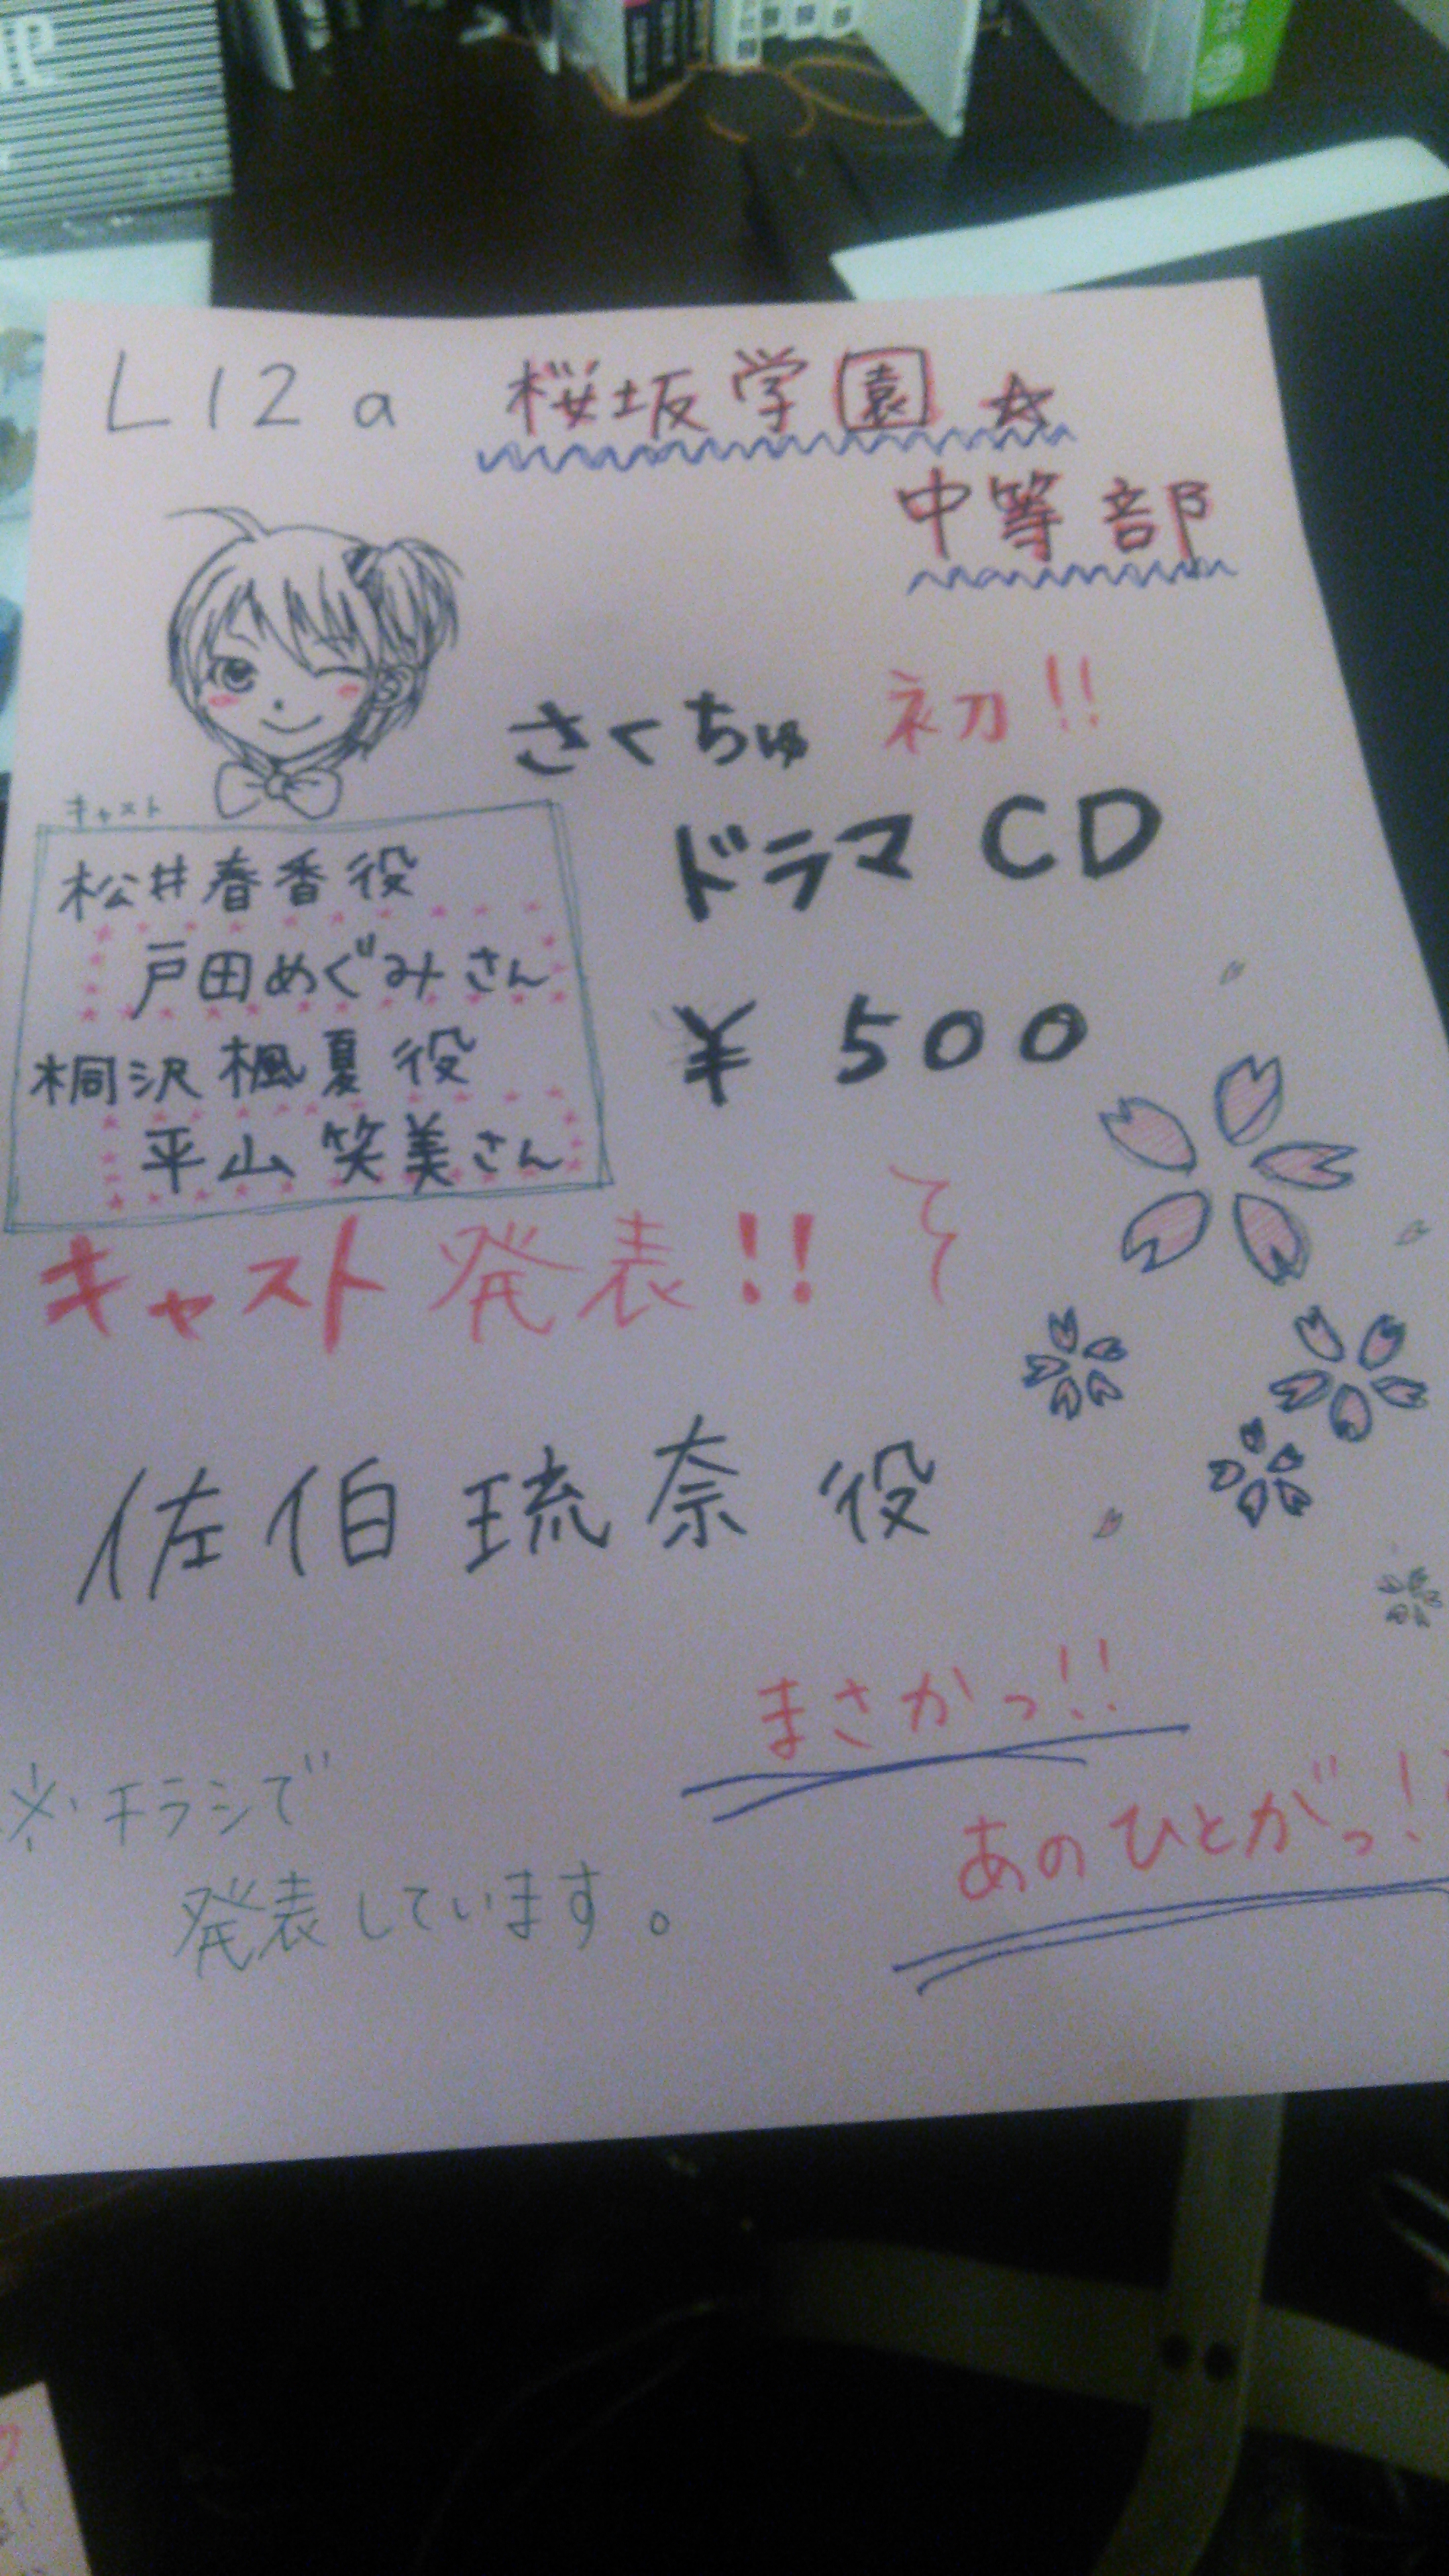 L12a 桜坂学園☆
中等部
さくちゅ 初!!
ドラマCD
¥500
キャスト
松井春香役
戸田めぐみさん
桐沢楓夏役
平山笑美さん
キャスト発表!!
佐伯琉奈役
まさかっ!!
あのひとがっ!
※チラシで
発表しています。